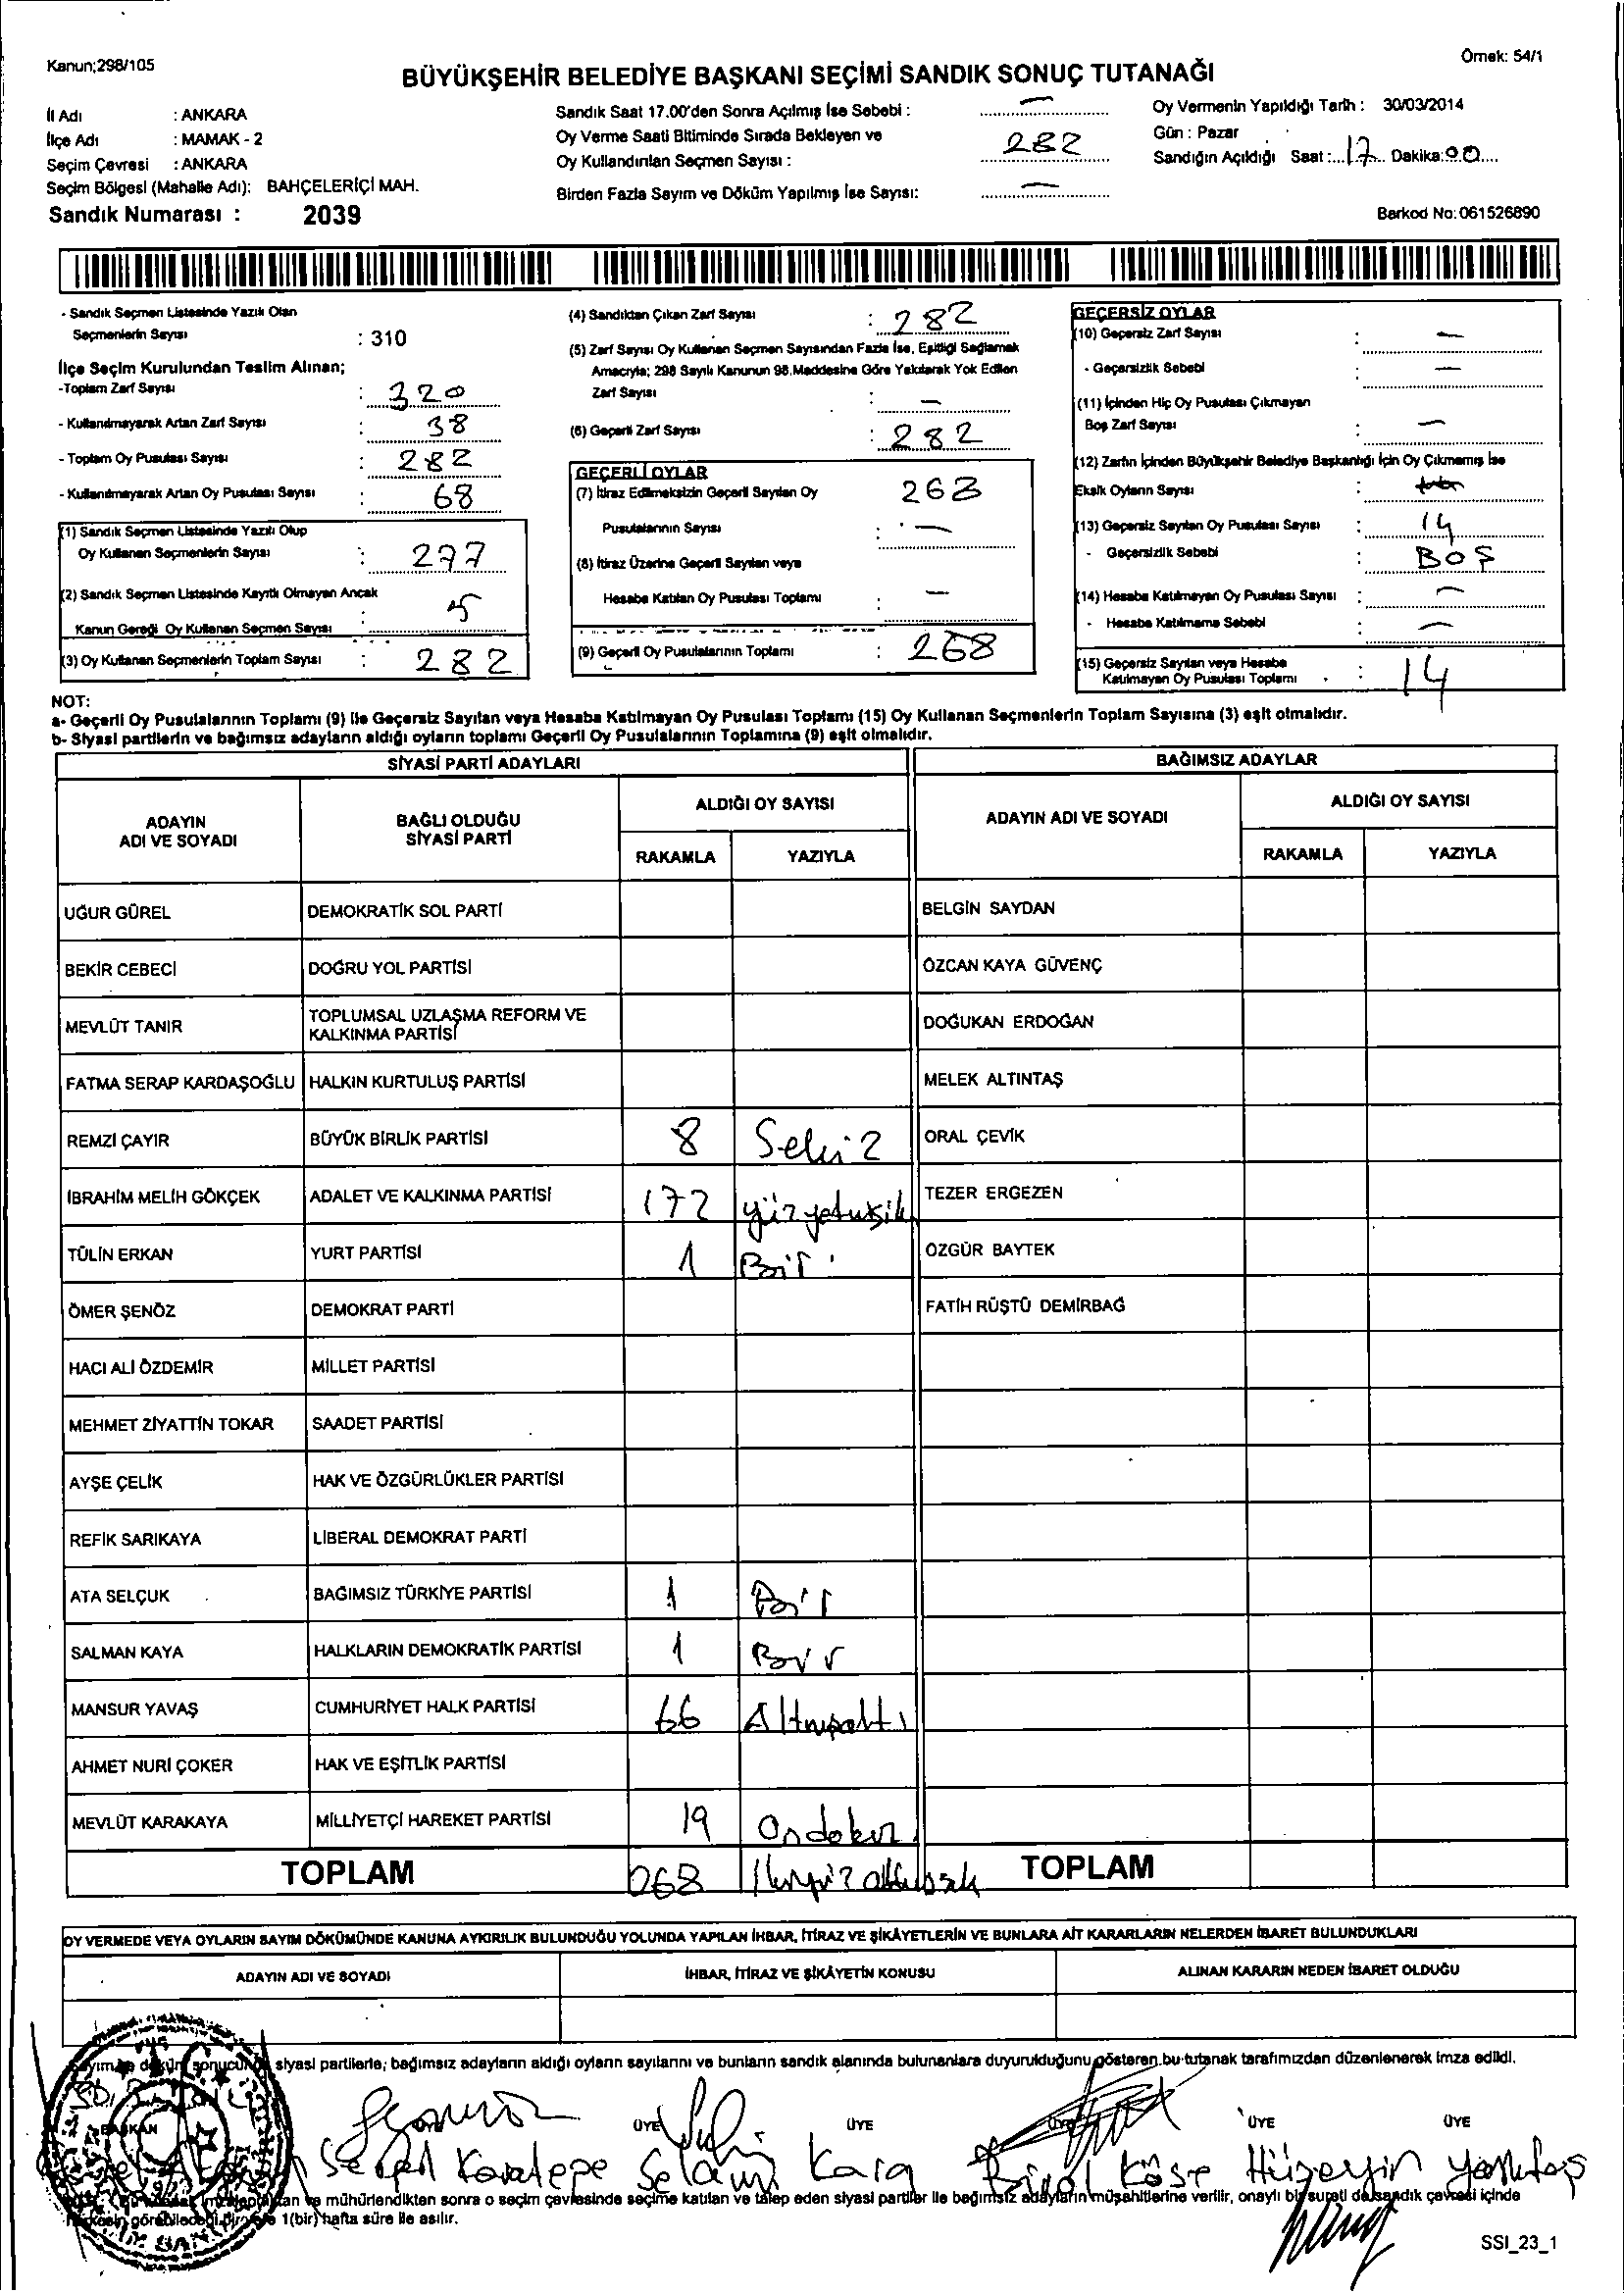 Kanun;298/105
Örnek: 54/1
BÜYÜKŞEHİR BELEDİYE BAŞKANI SEÇİMİ SANDIK SONUÇ TUTANAĞI
İl Adı : ANKARA
İlçe Adı : MAMAK - 2
Seçim Çevresi : ANKARA
Seçim Bölgesi (Mahalle Adı): BAHÇELERİÇİ MAH.
Sandık Numarası : 2039
Sandık Saat 17.00'den Sonra Açılmış İse Sebebi : —
Oy Verme Saati Bitiminde Sırada Bekleyen ve
Oy Kullandırılan Seçmen Sayısı : 282
Birden Fazla Sayım ve Döküm Yapılmış İse Sayısı: —
Oy Vermenin Yapıldığı Tarih : 30/03/2014
Gün : Pazar
Sandığın Açıldığı Saat :...17... Dakika:00....
Barkod No: 061526890
- Sandık Seçmen Listesinde Yazılı Olan
Seçmenlerin Sayısı : 310
İlçe Seçim Kurulundan Teslim Alınan;
-Toplam Zarf Sayısı : 320
- Kullanılmayarak Artan Zarf Sayısı : 38
- Toplam Oy Pusulası Sayısı : 282
- Kullanılmayarak Artan Oy Pusulası Sayısı : 68
(1) Sandık Seçmen Listesinde Yazılı Olup
Oy Kullanan Seçmenlerin Sayısı : 277
(2) Sandık Seçmen Listesinde Kayıtlı Olmayan Ancak
Kanun Gereği Oy Kullanan Seçmen Sayısı : 5
(3) Oy Kullanan Seçmenlerin Toplam Sayısı : 282
(4) Sandıktan Çıkan Zarf Sayısı : 282
(5) Zarf Sayısı Oy Kullanan Seçmen Sayısından Fazla İse, Eşitliği Sağlamak
Amacıyla; 298 Sayılı Kanunun 98.Maddesine Göre Yakılarak Yok Edilen
Zarf Sayısı : —
(6) Geçerli Zarf Sayısı : 282
GEÇERLİ OYLAR
(7) İtiraz Edilmeksizin Geçerli Sayılan Oy 268
Pusulalarının Sayısı : —
(8) İtiraz Üzerine Geçerli Sayılan veya
Hesaba Katılan Oy Pusulası Toplamı : —
(9) Geçerli Oy Pusulalarının Toplamı : 268
GEÇERSİZ OYLAR
(10) Geçersiz Zarf Sayısı : —
- Geçersizlik Sebebi : —
(11) İçinden Hiç Oy Pusulası Çıkmayan
Boş Zarf Sayısı : —
(12) Zarfın İçinden Büyükşehir Belediye Başkanlığı İçin Oy Çıkmamış İse
Eksik Oyların Sayısı :
(13) Geçersiz Sayılan Oy Pusulası Sayısı : 14
- Geçersizlik Sebebi : BOŞ
(14) Hesaba Katılmayan Oy Pusulası Sayısı : —
- Hesaba Katılmama Sebebi : —
(15) Geçersiz Sayılan veya Hesaba
Katılmayan Oy Pusulası Toplamı : 14
NOT:
a- Geçerli Oy Pusulalarının Toplamı (9) ile Geçersiz Sayılan veya Hesaba Katılmayan Oy Pusulası Toplamı (15) Oy Kullanan Seçmenlerin Toplam Sayısına (3) eşit olmalıdır.
b- Siyasi partilerin ve bağımsız adayların aldığı oyların toplamı Geçerli Oy Pusulalarının Toplamına (9) eşit olmalıdır.
SİYASİ PARTİ ADAYLARI BAĞIMSIZ ADAYLAR
ADAYIN ADI VE SOYADI BAĞLI OLDUĞU SİYASİ PARTİ ALDIĞI OY SAYISI ADAYIN ADI VE SOYADI ALDIĞI OY SAYISI
RAKAMLA YAZIYLA RAKAMLA YAZIYLA
UĞUR GÜREL DEMOKRATİK SOL PARTİ BELGİN SAYDAN
BEKİR CEBECİ DOĞRU YOL PARTİSİ ÖZCAN KAYA GÜVENÇ
MEVLÜT TANIR TOPLUMSAL UZLAŞMA REFORM VE KALKINMA PARTİSİ DOĞUKAN ERDOĞAN
FATMA SERAP KARDAŞOĞLU HALKIN KURTULUŞ PARTİSİ MELEK ALTINTAŞ
REMZİ ÇAYIR BÜYÜK BİRLİK PARTİSİ 8 Sekiz ORAL ÇEVİK
İBRAHİM MELİH GÖKÇEK ADALET VE KALKINMA PARTİSİ 172 yüzyetmişik TEZER ERGEZEN
TÜLİN ERKAN YURT PARTİSİ 1 Bir ÖZGÜR BAYTEK
ÖMER ŞENÖZ DEMOKRAT PARTİ FATİH RÜŞTÜ DEMİRBAĞ
HACI ALİ ÖZDEMİR MİLLET PARTİSİ
MEHMET ZİYATTİN TOKAR SAADET PARTİSİ
AYŞE ÇELİK HAK VE ÖZGÜRLÜKLER PARTİSİ
REFİK SARIKAYA LİBERAL DEMOKRAT PARTİ
ATA SELÇUK BAĞIMSIZ TÜRKİYE PARTİSİ 1 Bir
SALMAN KAYA HALKLARIN DEMOKRATİK PARTİSİ 1 Bir
MANSUR YAVAŞ CUMHURİYET HALK PARTİSİ 66 Altmışaltı
AHMET NURİ ÇOKER HAK VE EŞİTLİK PARTİSİ
MEVLÜT KARAKAYA MİLLİYETÇİ HAREKET PARTİSİ 19 Ondokuz
TOPLAM 268 TOPLAM
OY VERMEDE VEYA OYLARIN SAYIM DÖKÜMÜNDE KANUNA AYKIRILIK BULUNDUĞU YOLUNDA YAPILAN İHBAR, İTİRAZ VE ŞİKÂYETLERİN VE BUNLARA AİT KARARLARIN NELERDEN İBARET BULUNDUKLARI
ADAYIN ADI VE SOYADI İHBAR, İTİRAZ VE ŞİKÂYETİN KONUSU ALINAN KARARIN NEDEN İBARET OLDUĞU
sonucunda siyasi partilerle; bağımsız adayların aldığı oyların sayılarını ve bunların sandık alanında bulunanlara duyurulduğunu gösteren bu tutanak tarafımızdan düzenlenerek imza edildi.
BAŞKAN ÜYE ÜYE ÜYE ÜYE ÜYE
Serpil Karatepe Selami Kara Birol Köse Hüseyin
mühürlendikten sonra o seçim çevresinde seçime katılan ve talep eden siyasi partiler ile bağımsız adayların müşahitlerine verilir, onaylı bir sureti de sandık çevresi içinde
1(bir) hafta süre ile asılır.
SSI_23_1